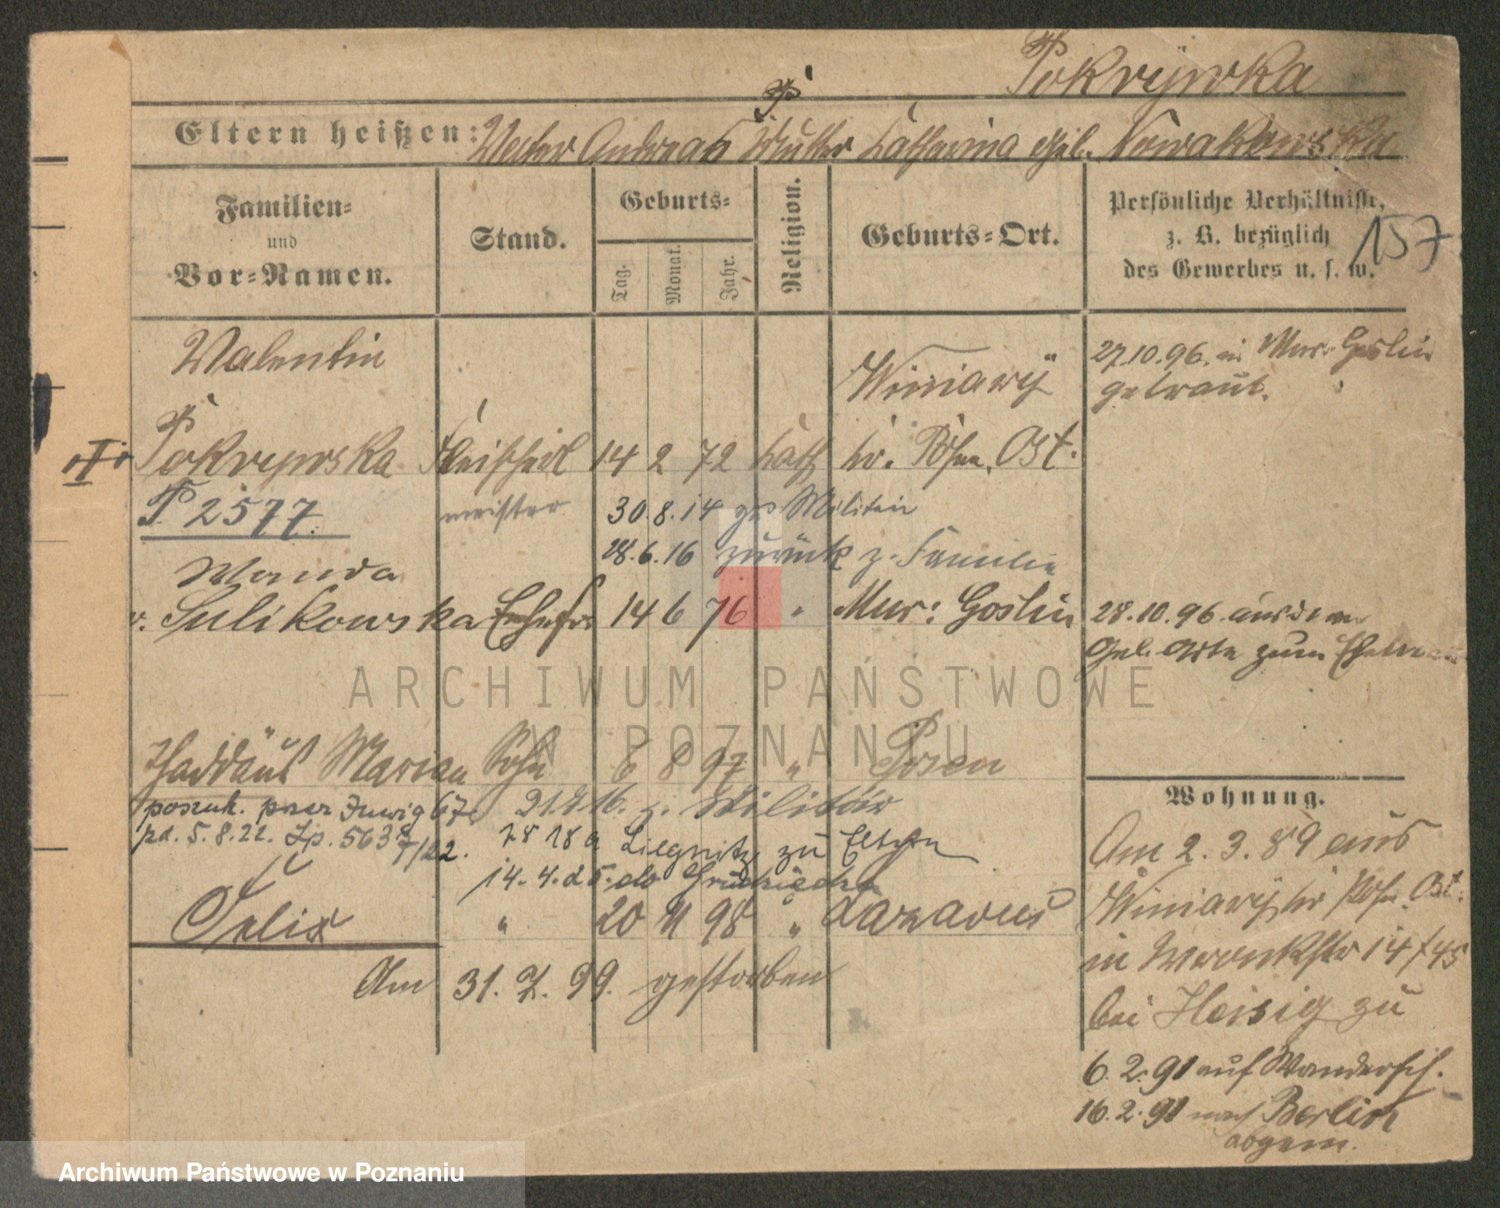 Pokrywka
Eltern heißen: Vater Andreas Mutter Katharina geb. Nowakowska
Familien-
und
Vor-Namen.
Stand.
Geburts-
Tag.
Monat.
Jahr.
Religion.
Geburts-Ort.
Persönliche Verhältnisse,
z. B. bezüglich
des Gewerbes u. s. w.
157
Valentin
Pokrywka Fleischerl 14 2 72 kath Winiary Kr. Posen Ost.
meister
P 2577.
27.10.96. in Mur. Goslin
getraut.
30.8.14 zum Militär
28.6.16 zurück z. Familie
Wanda
v. Sulikowska Ehefr. 14 6 76 " Mur: Goslin
28.10.96 aus dem
Geb. Orte zum Ehem
Thaddäus Marian Sohn 6 8 97 " Posen
poszuk. przez
pd. 5.8.22. Lp. 5638
7/22.
21.7.16. z. Militär
18 a Liegnitz zu Eltern
14.4.25. do
Felix " 20 11 98 " Lazarus
Am 31. 7. 99. gestorben
Wohnung.
Am 2. 3. 89 aus
Winiary Kr Posn. Ost.
in Wronkstr 14/45
bei Heisig zu
6. 2. 91 auf Wandersch.
16. 2. 91 nach Berlin
abgem.
ARCHIWUM PAŃSTWOWE
W POZNANIU
Archiwum Państwowe w Poznaniu